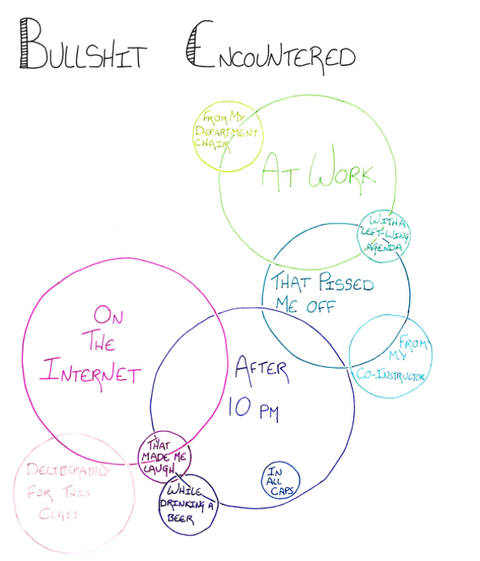 BULLSHIT ENCOUNTERED
FROM MY
DEPARTMENT
CHAIR
AT WORK
WITH A
LEFT-WING
AGENDA
THAT PISSED
ME OFF
FROM
MY
CO-INSTRUCTOR
ON
THE
INTERNET
AFTER
10 PM
THAT
MADE ME
LAUGH
IN
ALL
CAPS
DELIBERATELY
FOR THIS
CLASS
WHILE
DRINKING A
BEER